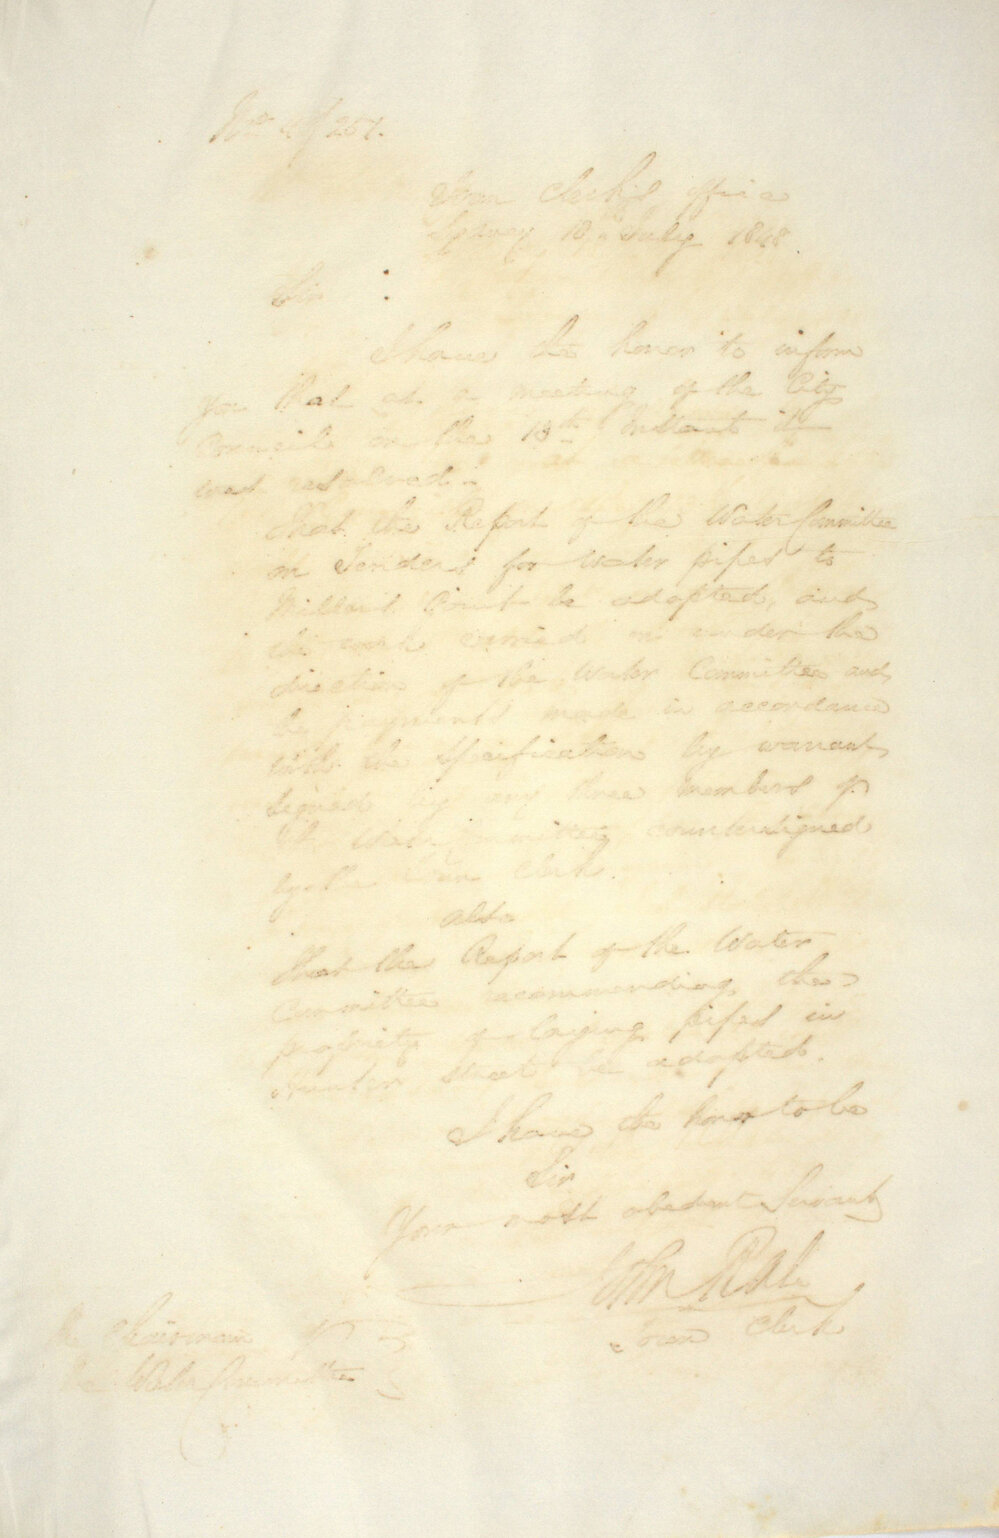 Town Clerk's Office
Sydney 18th July 1848.
Sir
I have the honor to inform
you that at a meeting of the City
Council on the 13th Instant it
was resolved.
That the Report of the Water Committee
on Tenders for Water pipes to
Point be adopted, and
the work carried on under the
direction of the Water Committee and
be payments made in accordance
with the Specification by warrant
signed by any three members of
the Water Committee countersigned
by the Town Clerk.
also
That the Report of the Water
Committee recommending the
propriety of laying pipes in
Hunter Street be adopted.
I have the honor to be
Sir
Your most obedient Servant
John Rae
Town Clerk
The Chairman of
the Water Committee